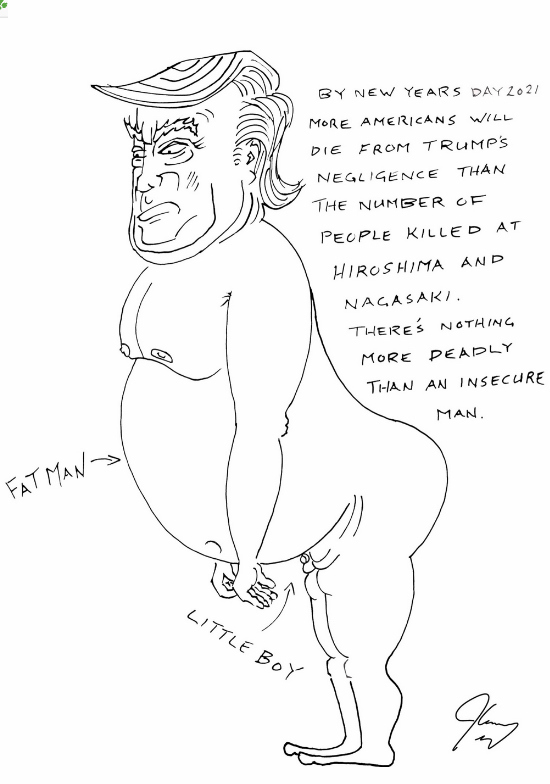 BY NEW YEARS DAY 2021
MORE AMERICANS WILL
DIE FROM TRUMP'S
NEGLIGENCE THAN
THE NUMBER OF
PEOPLE KILLED AT
HIROSHIMA AND
NAGASAKI.
THERE'S NOTHING
MORE DEADLY
THAN AN INSECURE
MAN.
FAT MAN
LITTLE BOY